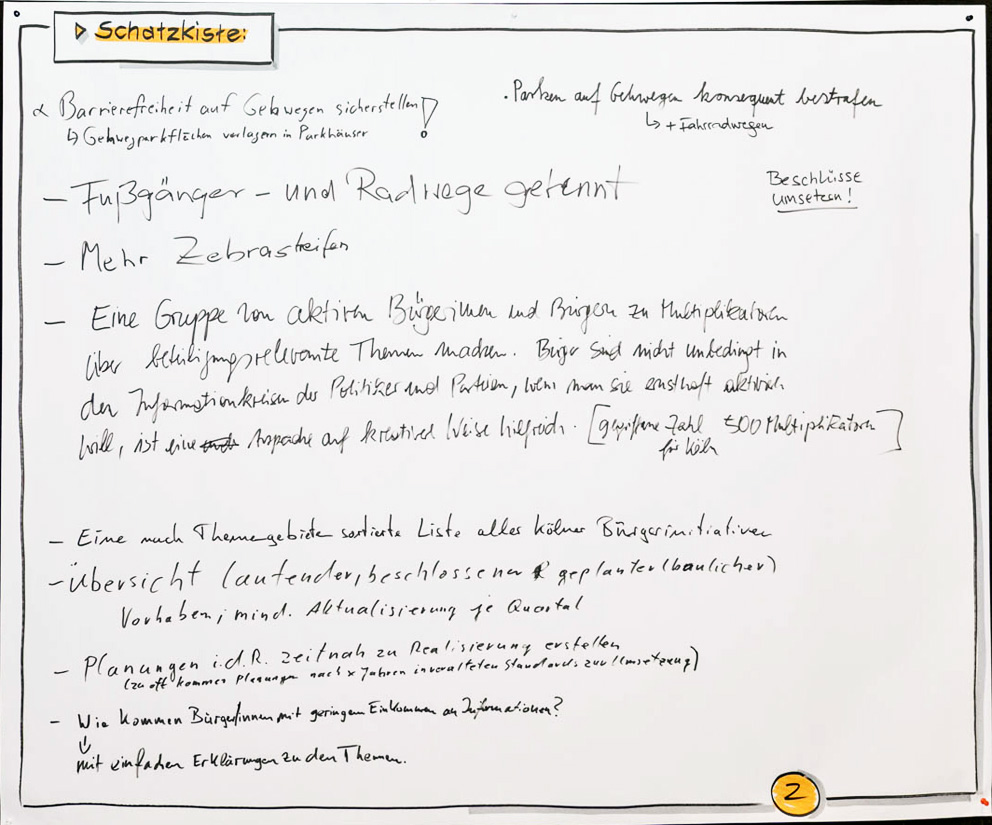 ▷ Schatzkiste:
∝ Barrierefreiheit auf Gehwegen sicherstellen!
↳ Gehwegparkflächen verlagern in Parkhäuser
· Parken auf Gehwegen konsequent bestrafen
↳ + Fahrradwegen
Beschlüsse
umsetzen!
– Fußgänger- und Radwege getrennt
– Mehr Zebrastreifen
– Eine Gruppe von aktiven Bürgerinnen und Bürgern zu Multiplikatoren
über beteiligungsrelevante Themen machen. Bürger sind nicht unbedingt in
den Informationskreisen der Politiker und Parteien, wenn man sie ernsthaft
will, ist eine Ansprache auf kreative Weise hilfreich. [gegriffene Zahl 500 Multiplikatoren]
für Köln
– Eine nach Themengebieten sortierte Liste aller Kölner Bürgerinitiativen
– Übersicht laufender, beschlossener geplanter (baulicher)
Vorhaben; mind. Aktualisierung je Quartal
– Planungen i.d.R. zeitnah zu Realisierung erstellen
(zu oft kommen Planungen nach x Jahren in veralteten Standards zur Umsetzung)
– Wie kommen Bürger/innen mit geringem Einkommen an Informationen?
↓
mit einfachen Erklärungen zu den Themen.
2